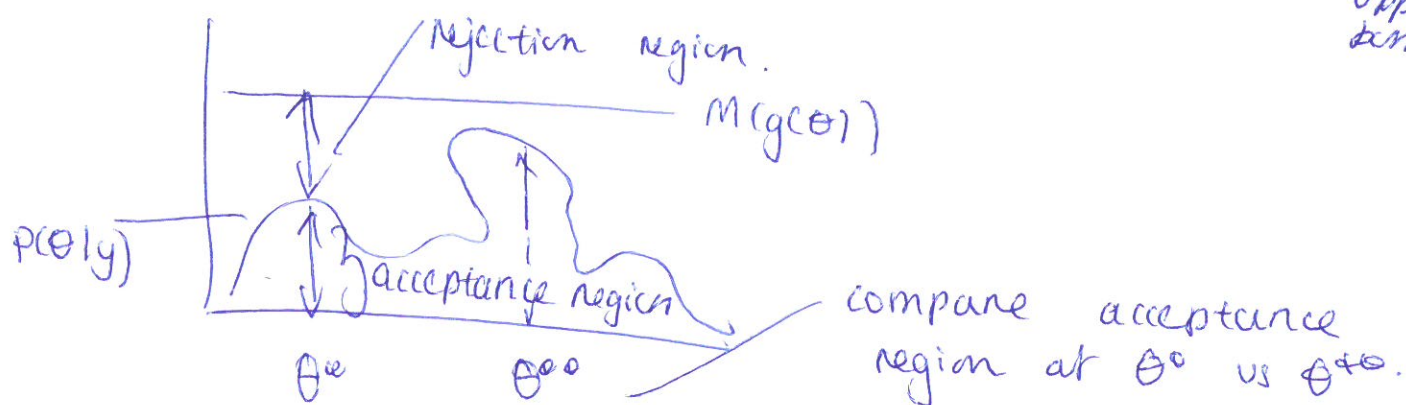 rejection region.
M(g(θ))
p(θ|y)
acceptance region
compare acceptance
region at θ* vs θ**.
θ*
θ**